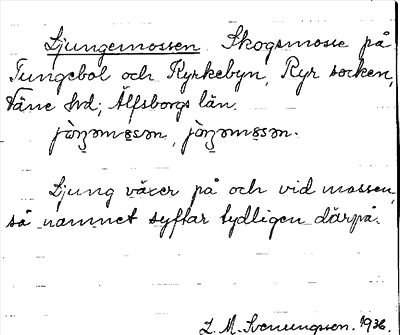 Ljungemossen Skogsmosse på
Tungebol och Kyrkebyn, Ryr socken,
Väne hd; Älfsborgs län.
Ljung växer på och vid mossen,
så namnet syftar tydligen därpå.
L. M. Svenungsson. 1936.